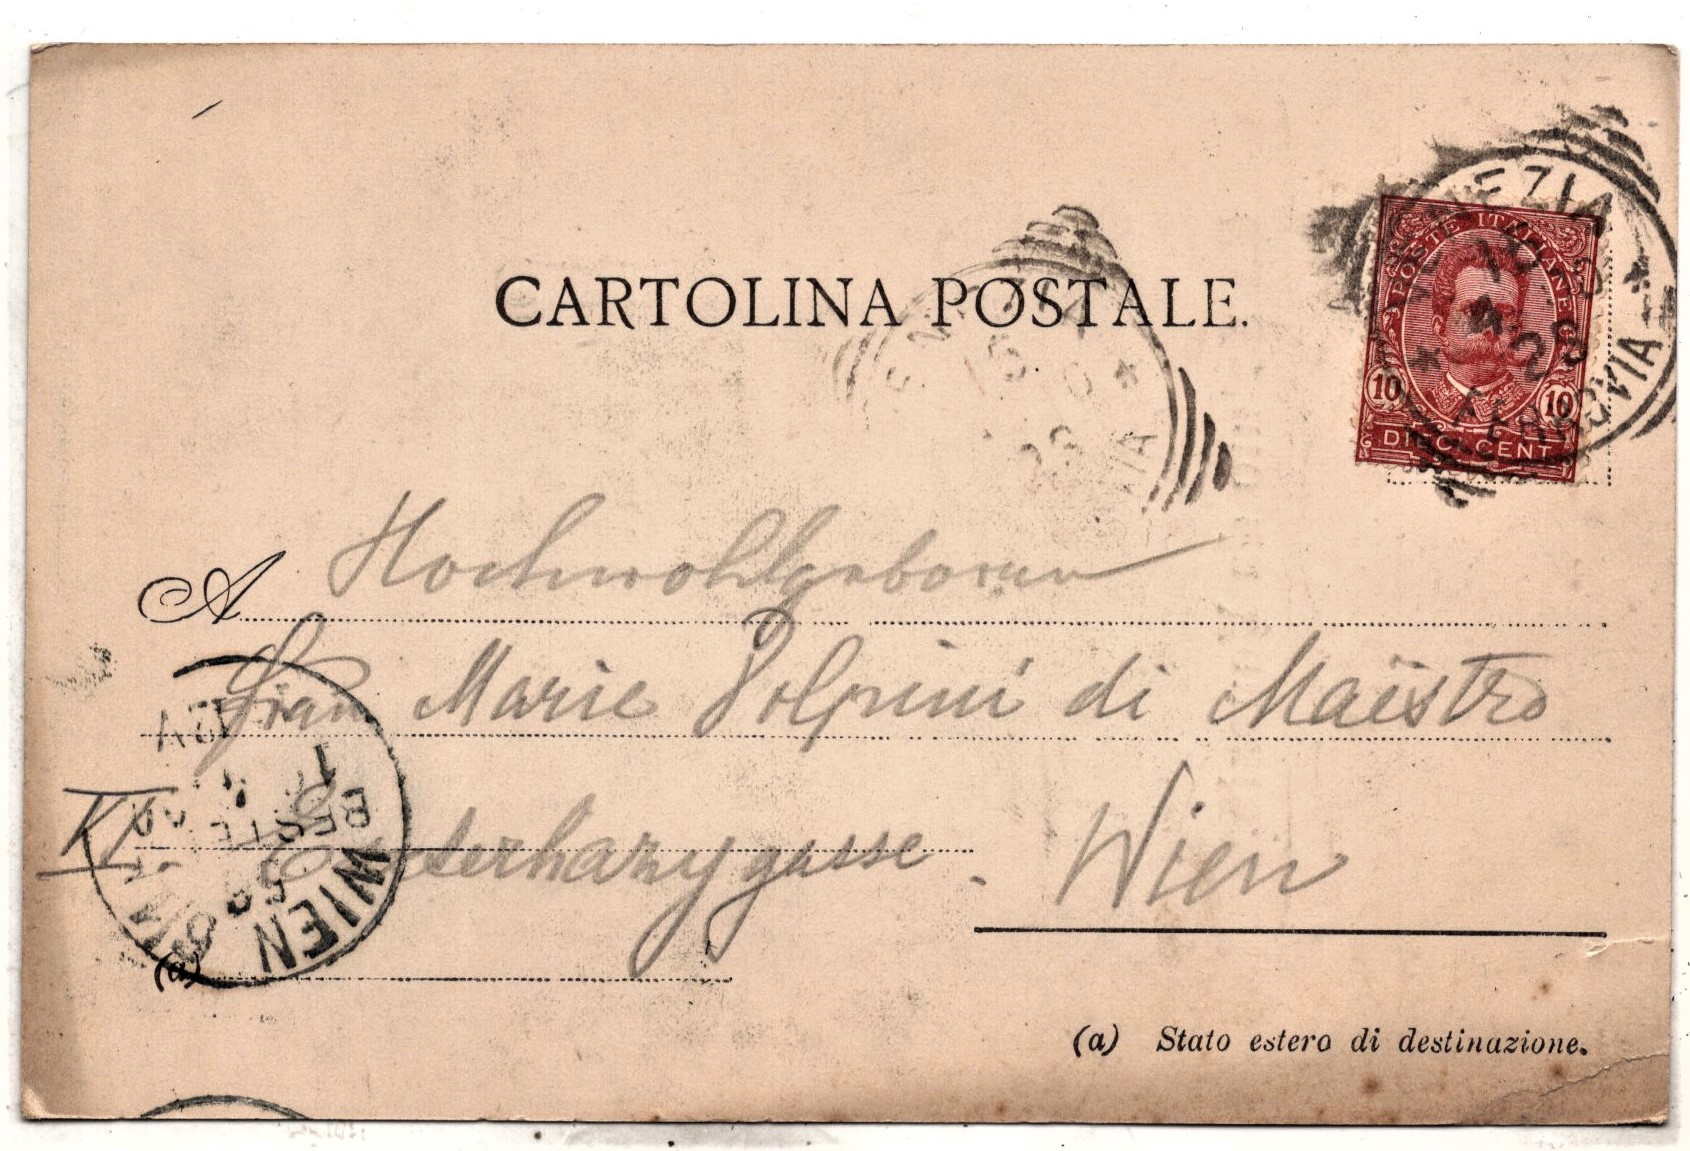 CARTOLINA POSTALE.
POSTE ITALIANE
10 10
DIECI CENT
FERROVIA
A Hochwohlgeboren
Frau Marie Volpini di Maëstro
VI Esterhazygasse. Wien
WIEN
BESTELLT
(a)
(a) Stato estero di destinazione.